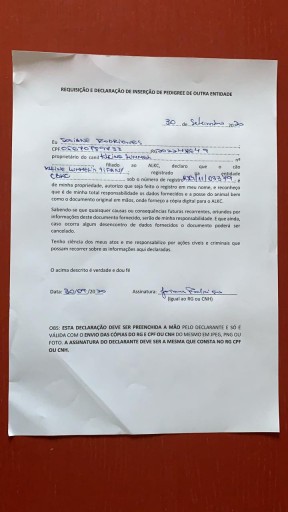 REQUISIÇÃO E DECLARAÇÃO DE INSERÇÃO DE PEDIGREE DE OUTRA ENTIDADE
30 de Setembro 2020
Eu JOSIANE RODRIGUES
proprietário do canil nº
filiado ao ALKC, declaro que o cão
registrado na entidade
CBKC sob o número de registro
de minha propriedade, autorizo que seja feito o registro em meu nome, e reconheço
que é de minha total responsabilidade os dados fornecidos e a posse do animal bem
como o documento original em mãos, onde forneço a cópia digital para o ALKC.
Sabendo-se que quaisquer causas ou consequências futuras recorrentes, oriundos por
informações deste documento fornecido, serão de minha responsabilidade. E que ainda,
caso ocorra algum desencontro de dados fornecidos o documento poderá ser
cancelado.
Tenho ciência dos meus atos e me responsabilizo por ações civeis e criminais que
possam recorrer sobre as informações aqui declaradas.
O acima descrito é verdade e dou fé
Data: 30/09/2020 Assinatura:
(igual ao RG ou CNH)
OBS: ESTA DECLARAÇÃO DEVE SER PREENCHIDA A MÃO PELO DECLARANTE E SÓ É
VÁLIDA COM O ENVIO DAS CÓPIAS DO RG E CPF OU CNH DO MESMO EM JPEG, PNG OU
FOTO. A ASSINATURA DO DECLARANTE DEVE SER A MESMA QUE CONSTA NO RG CPF
OU CNH.